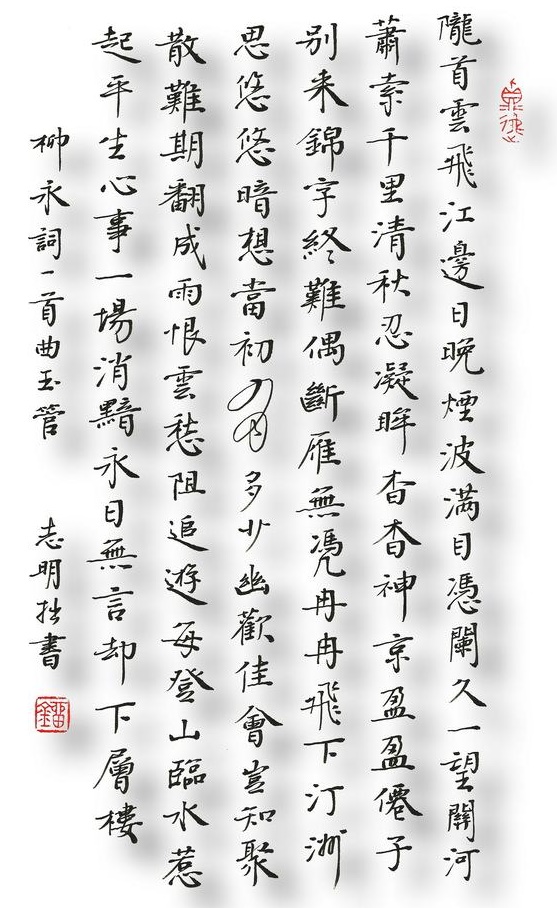 隴首雲飛江邊日晚煙波满目憑闌久一望關河
蕭索千里清秋忍凝眸杳杳神京盈盈僊子
别来錦字終難偶斷雁無凴冉冉飛下汀洲
思悠悠暗想當初有多少幽歡佳會豈知聚
散難期翻成雨恨雲愁阻追遊每登山臨水惹
起平生心事一場消黯永日無言却下層樓
柳永詞一首曲玉管 志明拙書